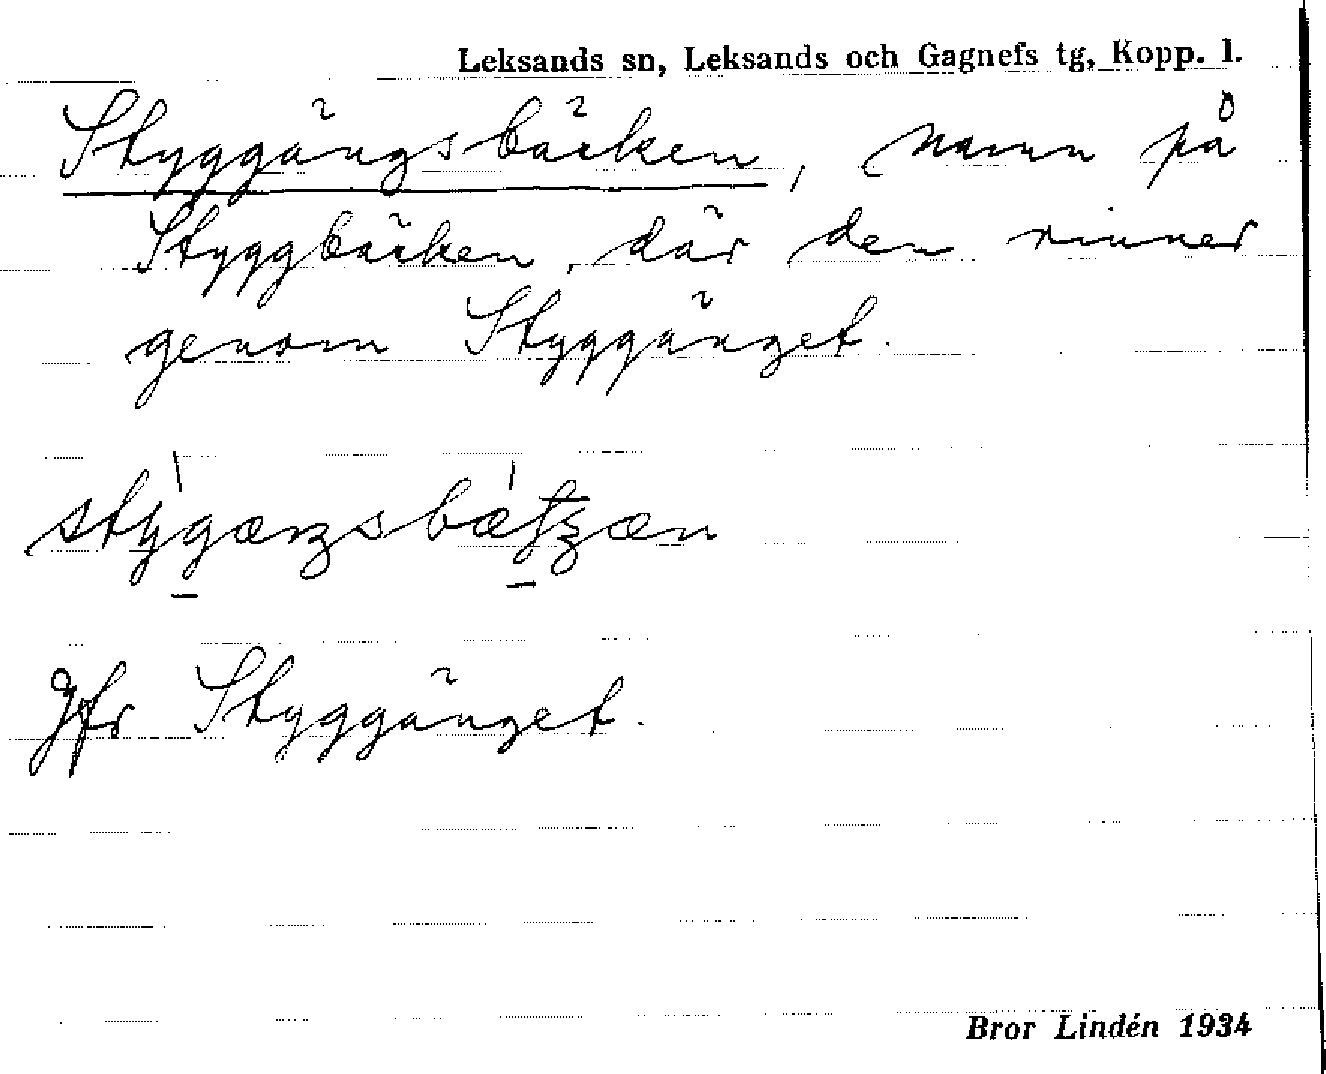 Leksands sn, Leksands och Gagnefs tg, Kopp. l.
Styggängsbäcken, namn på
Styggbäcken, där den rinner
genom Styggänget.
Jfr Styggänget.
Bror Lindén 1934